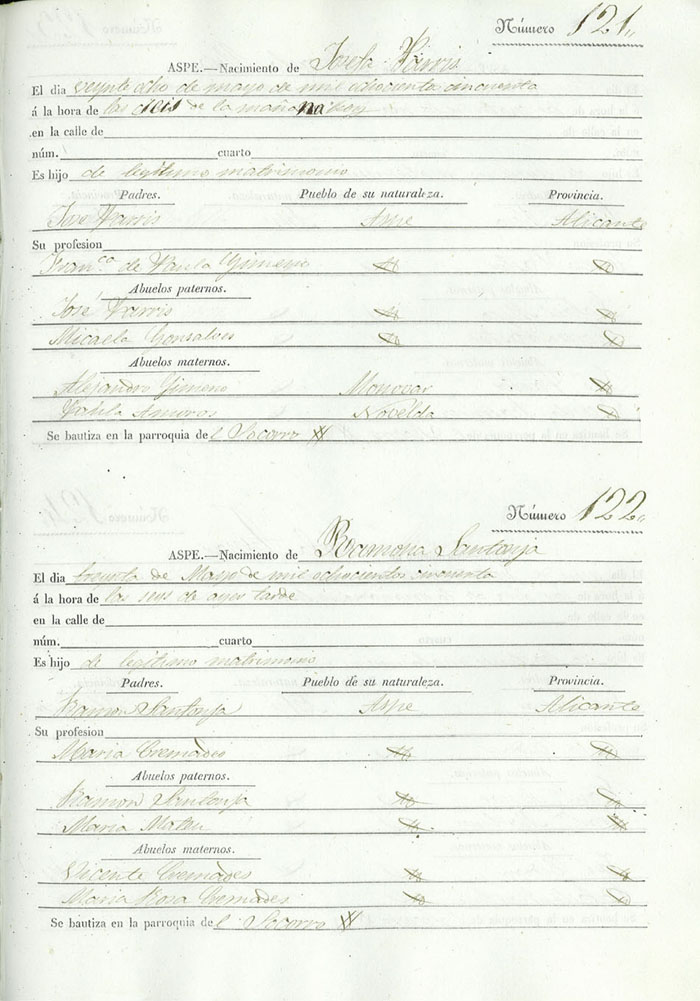 Número 121,,
ASPE.—Nacimiento de Josefa
El dia veynte ocho de mayo de mil ochocienta cincuenta
á la hora de las deis de la mañana hoy
en la calle de
núm. cuarto
Es hijo de legitimo matrimonio
Padres. Pueblo de su naturaleza. Provincia.
José Aspe Alicante
Su profesion
Fran.ca de Paula Gimeno
Abuelos paternos.
José
Micaela Gonsalves
Abuelos maternos.
Alejandro Gimeno Monovar
Paula Amoros Novelda
Se bautiza en la parroquia del Socorro
Número 122,,
ASPE.—Nacimiento de Ramona Santonja
El dia treinta de Mayo de mil ochocientos cincuenta
á la hora de las seis de ayer tarde
en la calle de
núm. cuarto
Es hijo de legitimo matrimonio
Padres. Pueblo de su naturaleza. Provincia.
Ramon Santonja Aspe Alicante
Su profesion
Maria Cremades
Abuelos paternos.
Ramon Santonja
Maria Mateu
Abuelos maternos.
Vicente Cremades
Maria Rosa Cremades
Se bautiza en la parroquia del Socorro